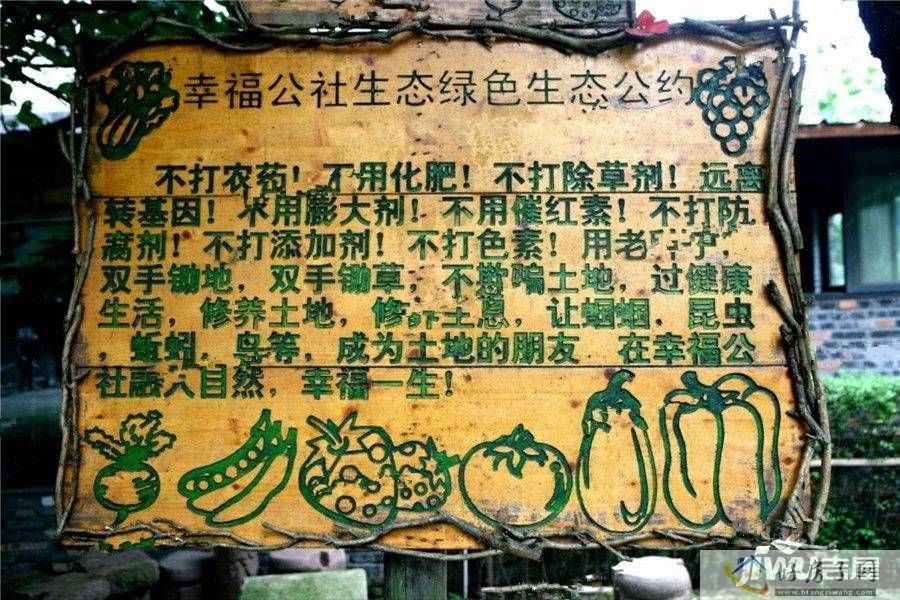 幸福公社生态绿色生态公约
不打农药！不用化肥！不打除草剂！远离
转基因！不用膨大剂！不用催红素！不打防
腐剂！不打添加剂！不打色素！用老
双手锄地，双手锄草，不欺骗土地，过健康
生活，修养土地，修 生息，让蝈蝈，昆虫
，蚯蚓，鸟等，成为土地的朋友 在幸福公
社融入自然，幸福一生！
jiwu吉屋
好房子哩
www.hfangziwang.com